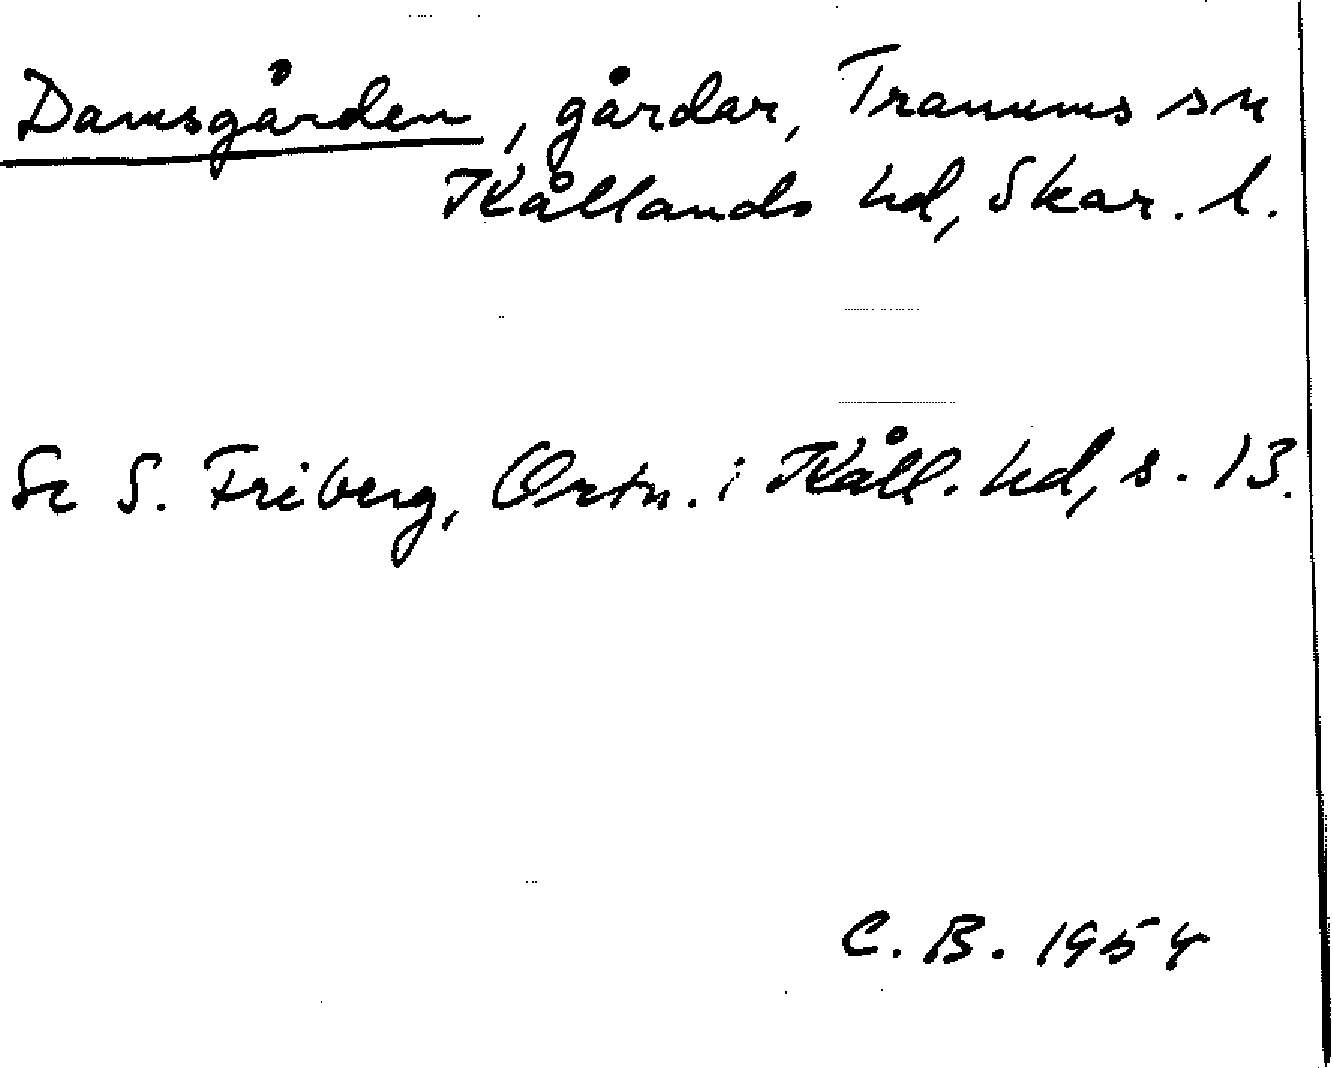 Damsgården, gårdar, Tranums sn
Kållands hd, Skar. l.
Se S. Friberg, Ortn. i Kåll. hd, s. 13.
C. B. 1954